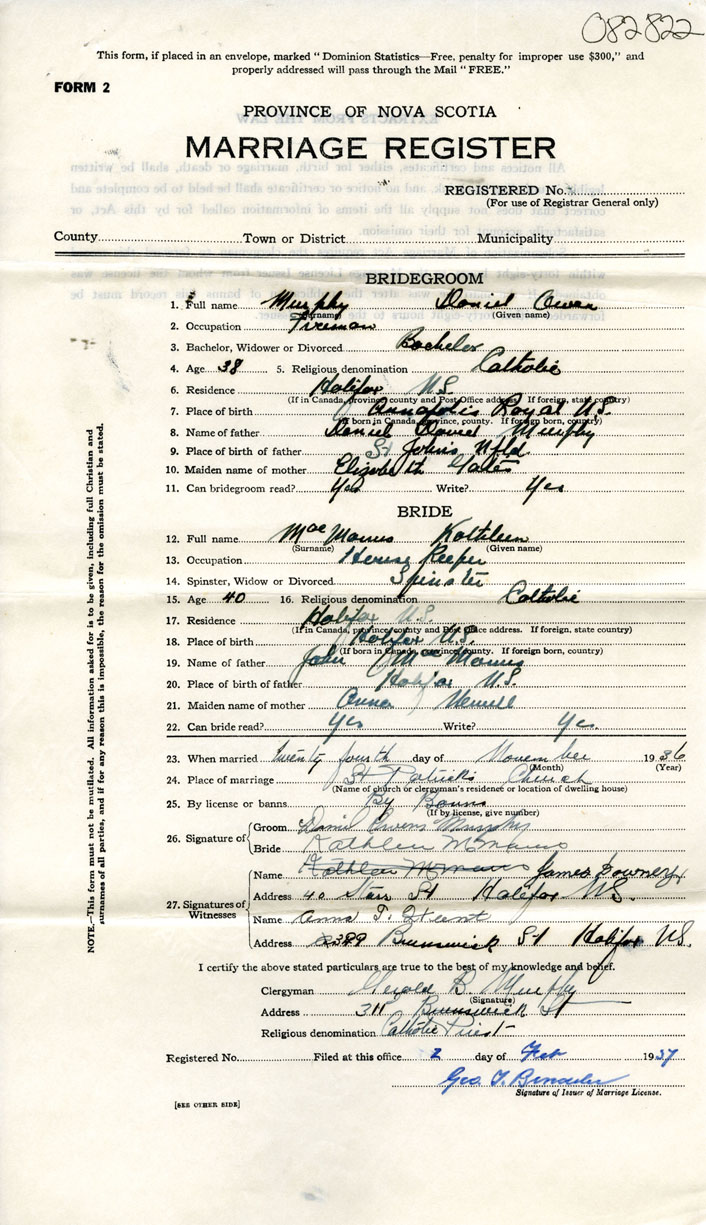 082822
This form, if placed in an envelope, marked "Dominion Statistics—Free, penalty for improper use $300," and
properly addressed will pass through the Mail "FREE."
FORM 2
PROVINCE OF NOVA SCOTIA
MARRIAGE REGISTER
REGISTERED No.
(For use of Registrar General only)
County Town or District Municipality
BRIDEGROOM
1. Full name Murphy Daniel Owen
(Surname) (Given name)
2. Occupation Fireman
3. Bachelor, Widower or Divorced Bachelor
4. Age 38 5. Religious denomination Catholic
6. Residence Halifax N.S.
(If in Canada, province county and Post Office address. If foreign, state country)
7. Place of birth Annapolis Royal N.S.
(If born in Canada, province, county. If foreign born, country)
8. Name of father Daniel Murphy
9. Place of birth of father St Johns Nfld
10. Maiden name of mother Elizabeth Yates
11. Can bridegroom read? Yes Write? Yes
BRIDE
12. Full name MacManus Kathleen
(Surname) (Given name)
13. Occupation House Keeper
14. Spinster, Widow or Divorced Spinster
15. Age 40 16. Religious denomination Catholic
17. Residence Halifax N.S.
(If in Canada, province county and Post Office address. If foreign, state country)
18. Place of birth Halifax N.S.
(If born in Canada, province, county. If foreign born, country)
19. Name of father John J MacManus
20. Place of birth of father Halifax N.S.
21. Maiden name of mother Anna
22. Can bride read? Yes Write? Yes.
23. When married twenty fourth day of November 1936
(Month) (Year)
24. Place of marriage St Patricks Church
(Name of church or clergyman's residence or location of dwelling house)
25. By license or banns By Banns
(If by license, give number)
26. Signature of
Groom Daniel Owens Murphy
Bride Kathleen McManus
27. Signatures of
Witnesses
Name Kathleen McManus James Downey
Address 40 Starr St Halifax N.S.
Name Anna T.
Address 2399 Brunswick St Halifax N.S.
I certify the above stated particulars are true to the best of my knowledge and belief.
Clergyman Gerald B. Murphy
(Signature)
Address 311 Brunswick St
Religious denomination Catholic Priest
Registered No. Filed at this office 2 day of Feb 1937
Geo. T.
Signature of Issuer of Marriage License.
[SEE OTHER SIDE]
NOTE.—This form must not be mutilated. All information asked for is to be given, including full Christian and
surnames of all parties, and if for any reason this is impossible, the reason for the omission must be stated.